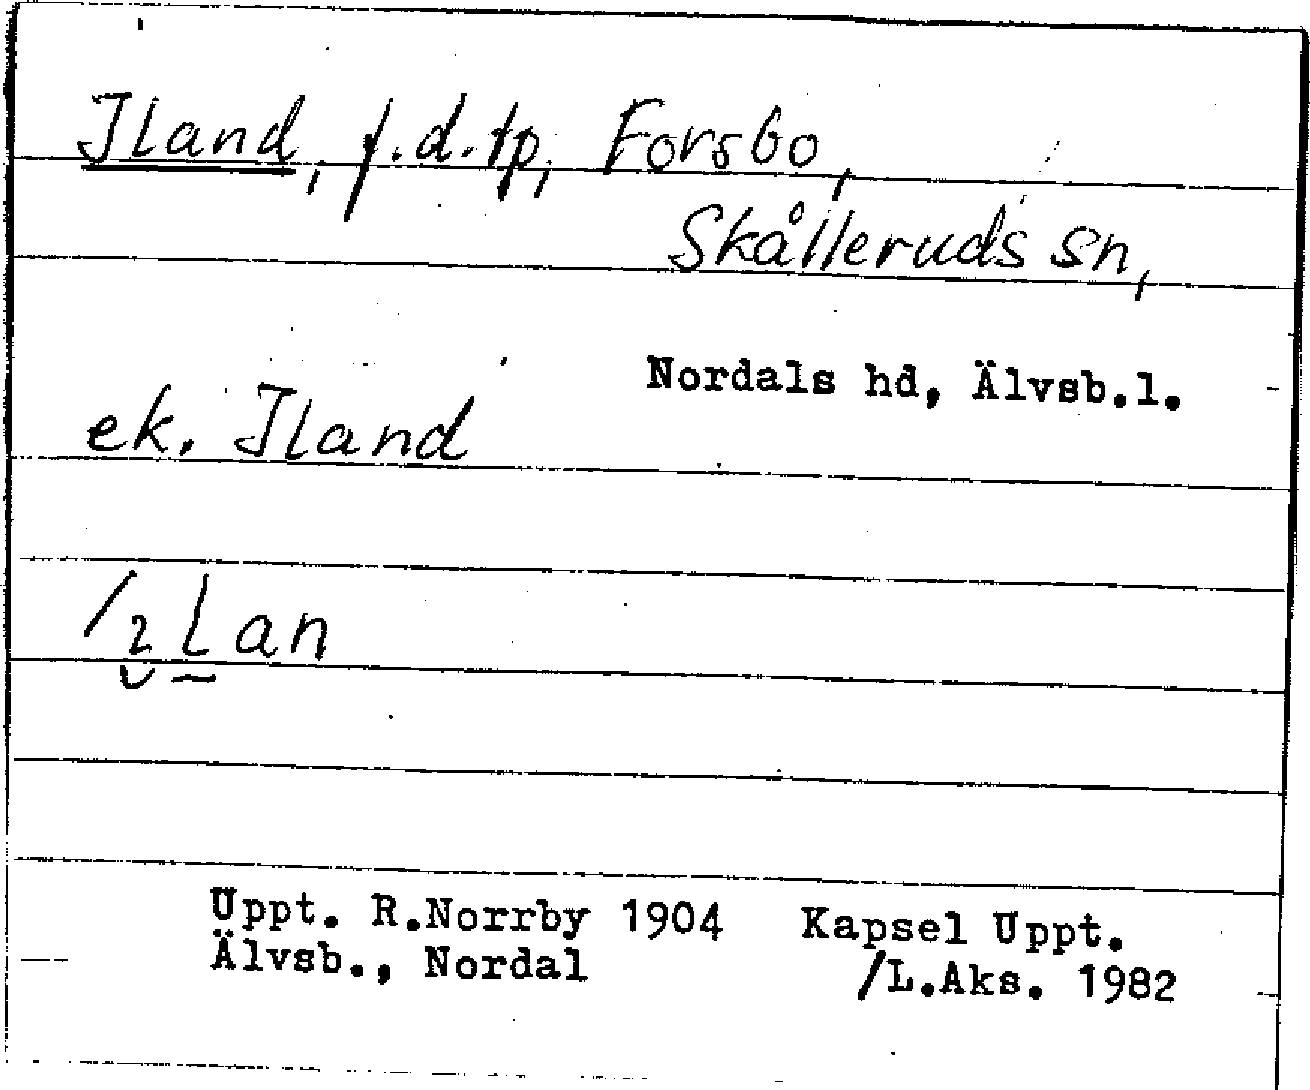 Iland, f.d.tp, Forsbo,
Skålleruds sn,
Nordals hd, Älvsb.l.
ek. Iland
/2 Lan
Uppt. R.Norrby 1904 Kapsel Uppt.
Älvsb., Nordal /L.Aks. 1982